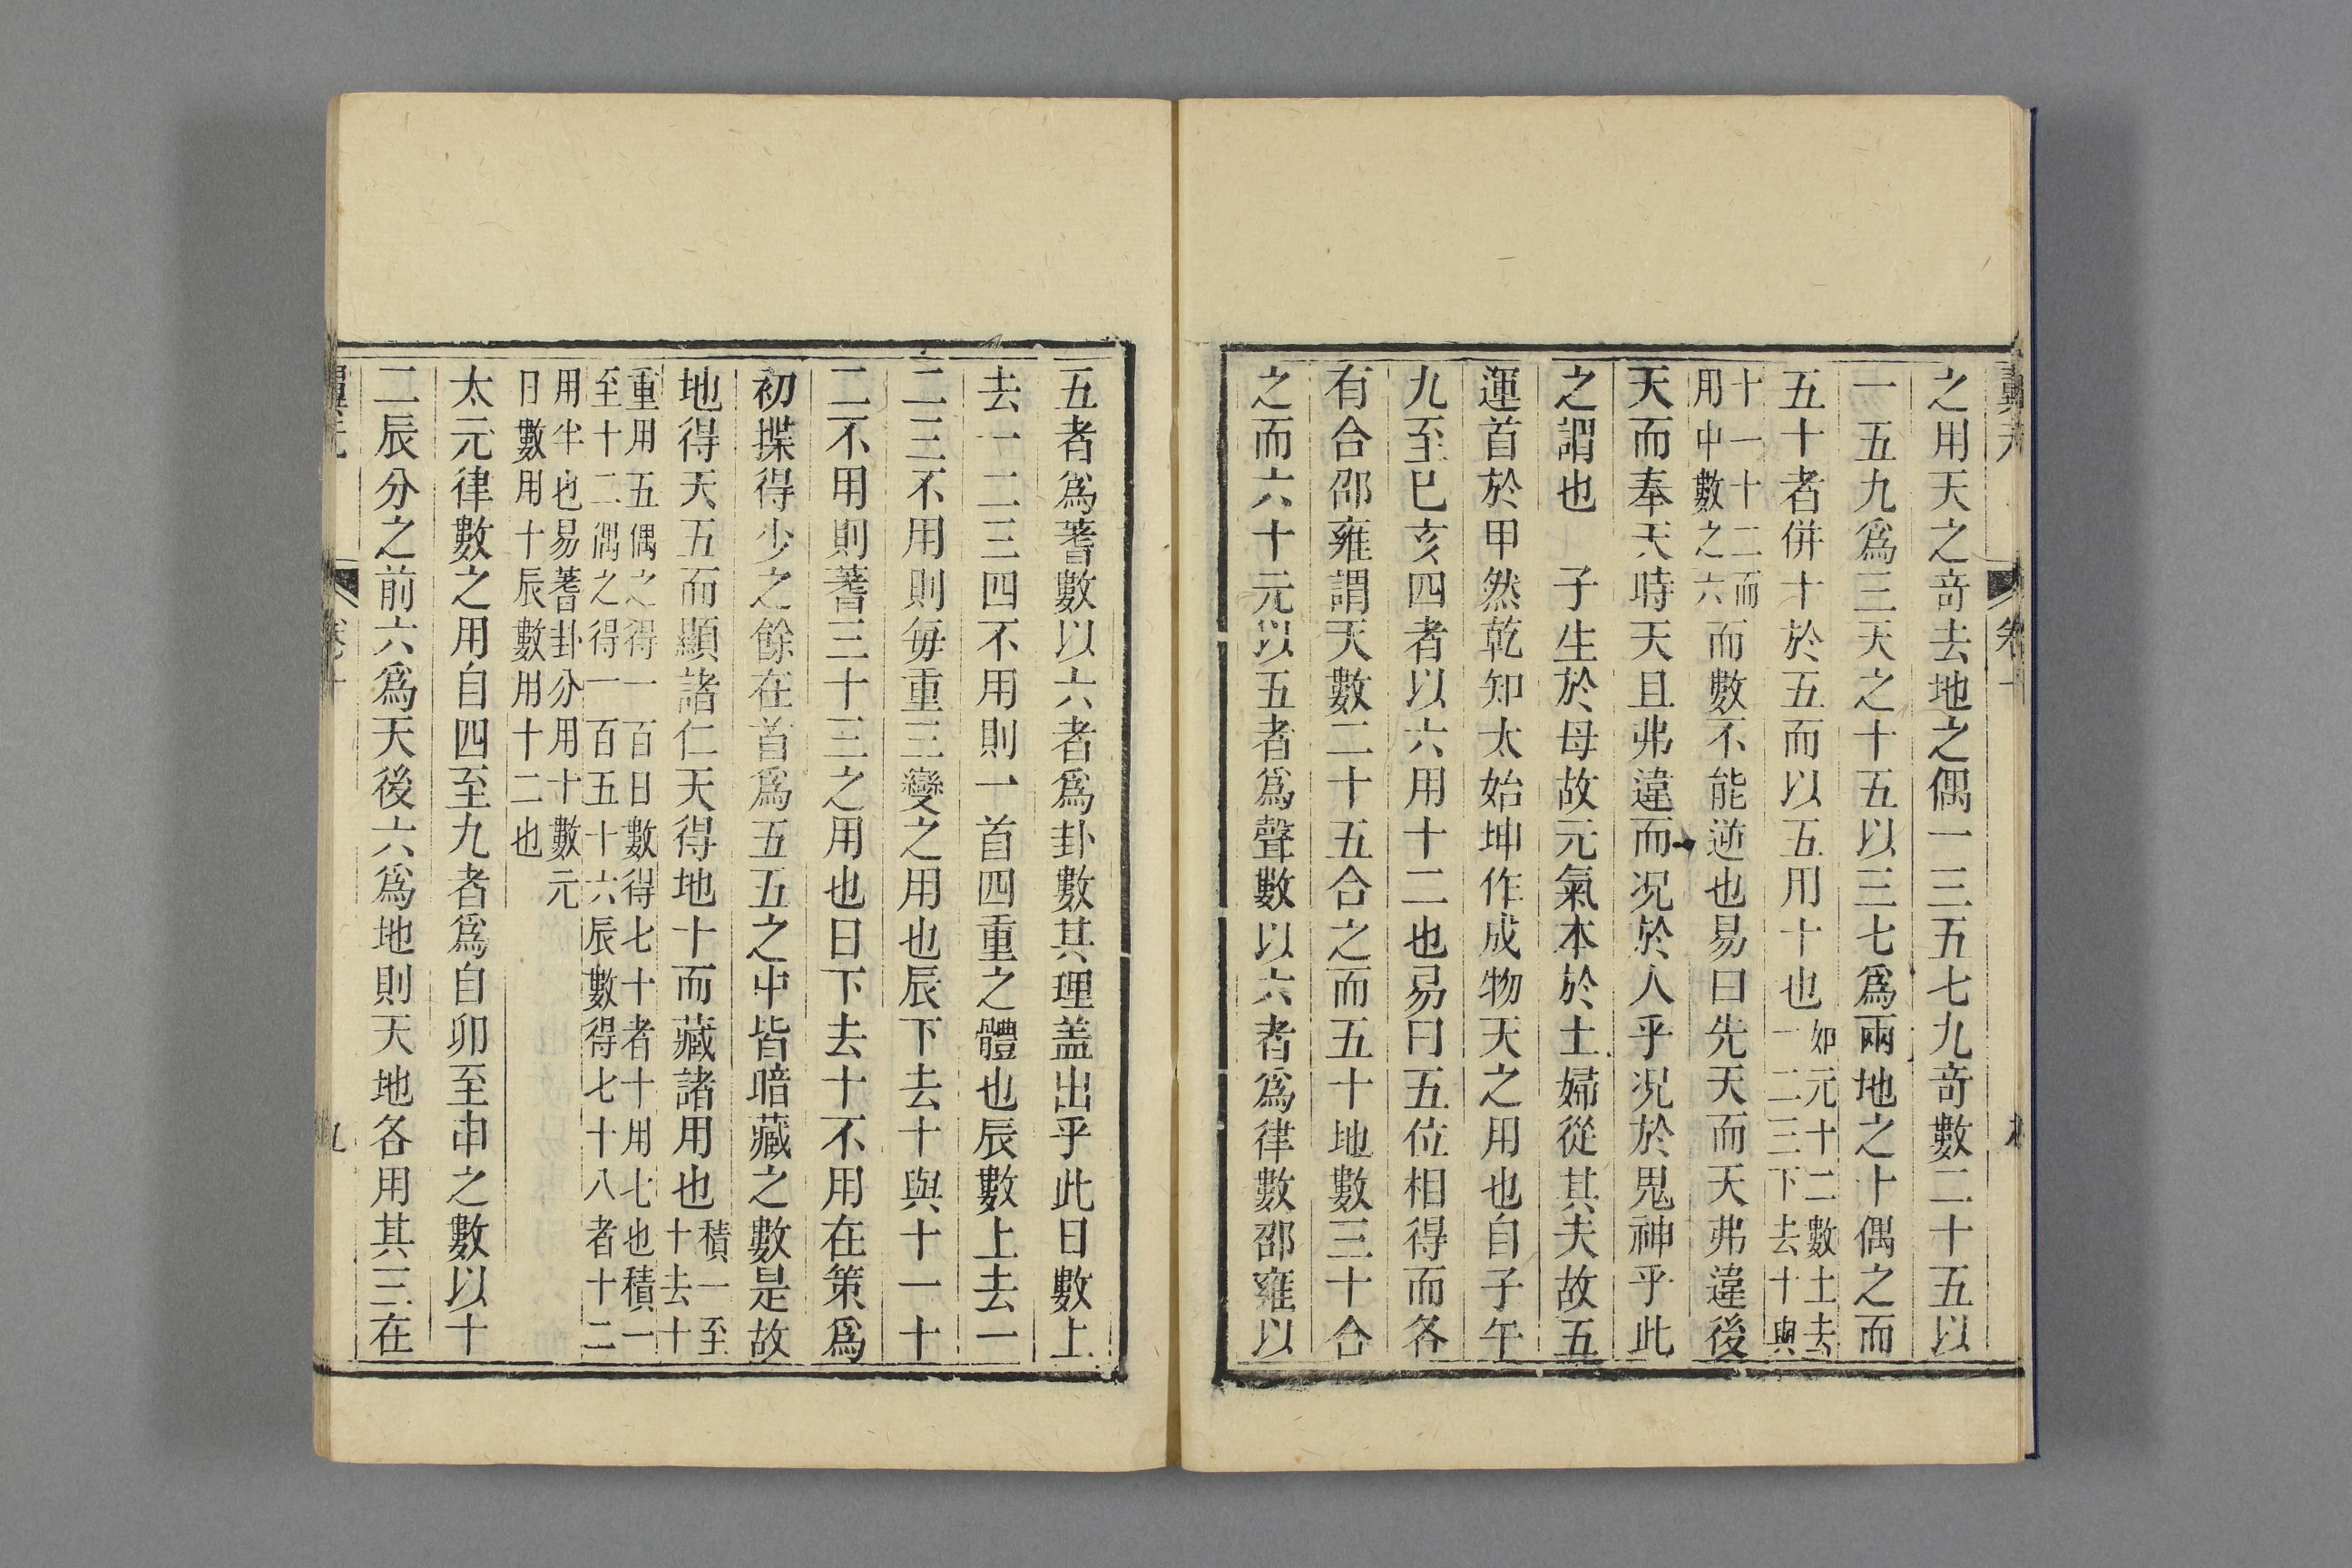 之用天之竒去地之偶一三五七九竒數二十五以
一五九爲三天之十五以三七爲兩地之十偶之而
五十者併十於五而以五用十也如元十二數上去
一二三下去十與
十一十二而
用中數之六而數不能逆也易曰先天而天弗違後
天而奉天時天且弗違而况於人乎况於鬼神乎此
之謂也 子生於母故元氣本於土婦從其夫故五
運首於甲然乾知太始坤作成物天之用也自子午
九至巳亥四者以六用十二也易曰五位相得而各
有合邵雍謂天數二十五合之而五十地數三十合
之而六十元以五者爲聲數以六者爲律數邵雍以
五者爲蓍數以六者爲卦數其理盖出乎此日數上
去一二三四不用則一首四重之體也辰數上去一
二三不用則每重三變之用也辰下去十與十一十
二不用則蓍三十三之用也日下去十不用在策爲
初揲得少之餘在首爲五五之中皆暗藏之數是故
地得天五而顯諸仁天得地十而藏諸用也積一至
十去十
重用五偶之得一百日數得七十者十用七也積一
至十二偶之得一百五十六辰數得七十八者十二
用半也易蓍卦分用十數元
日數用十辰數用十二也
太元律數之用自四至九者爲自卯至申之數以十
二辰分之前六爲天後六爲地則天地各用其三在